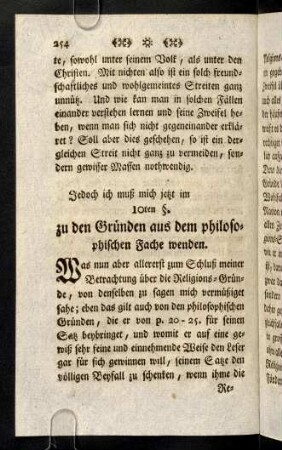 254
te, sowohl unter seinem Volk, als unter den
Christen. Mit nichten also ist ein solch freund-
schaftliches und wohlgemeintes Streiten ganz
unnütz. Und wie kan man in solchen Fällen
einander verstehen lernen und seine Zweifel he-
ben, wenn man sich nicht gegeneinander erklä-
ret? Soll aber dies geschehen, so ist ein der-
gleichen Streit nicht ganz zu vermeiden, son-
dern gewisser Massen nothwendig.
Jedoch ich muß mich jetzt im
10ten §.
zu den Gründen aus dem philoso-
phischen Fache wenden.
Was nun aber allererst zum Schluß meiner
Betrachtung über die Religions-Grün-
de, von denselben zu sagen mich vermüßiget
sahe; eben das gilt auch von den philosophischen
Gründen, die er von p. 20-25. für seinen
Satz beybringet, und womit er auf eine ge-
wiß sehr feine und einnehmende Weise den Leser
gar für sich gewinnen will, seinem Satze den
völligen Beyfall zu schenken, wenn ihme die
Re-